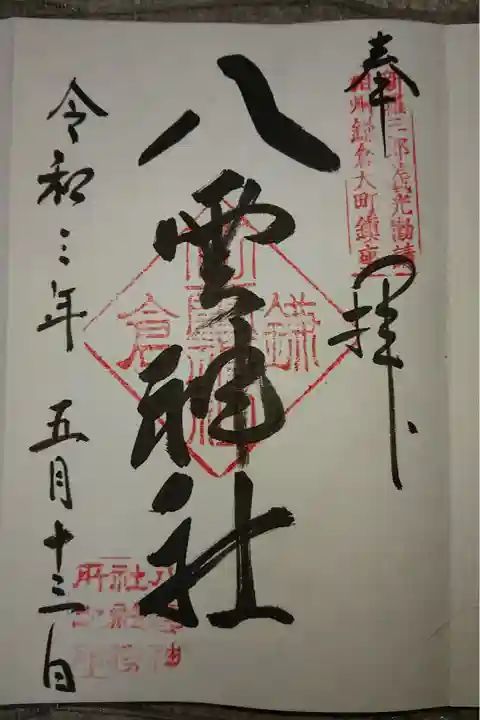 奉拝
新羅三郎義光勧請
相州鎌倉大町鎮座
八雲神社
鎌倉
令和三年五月十三日